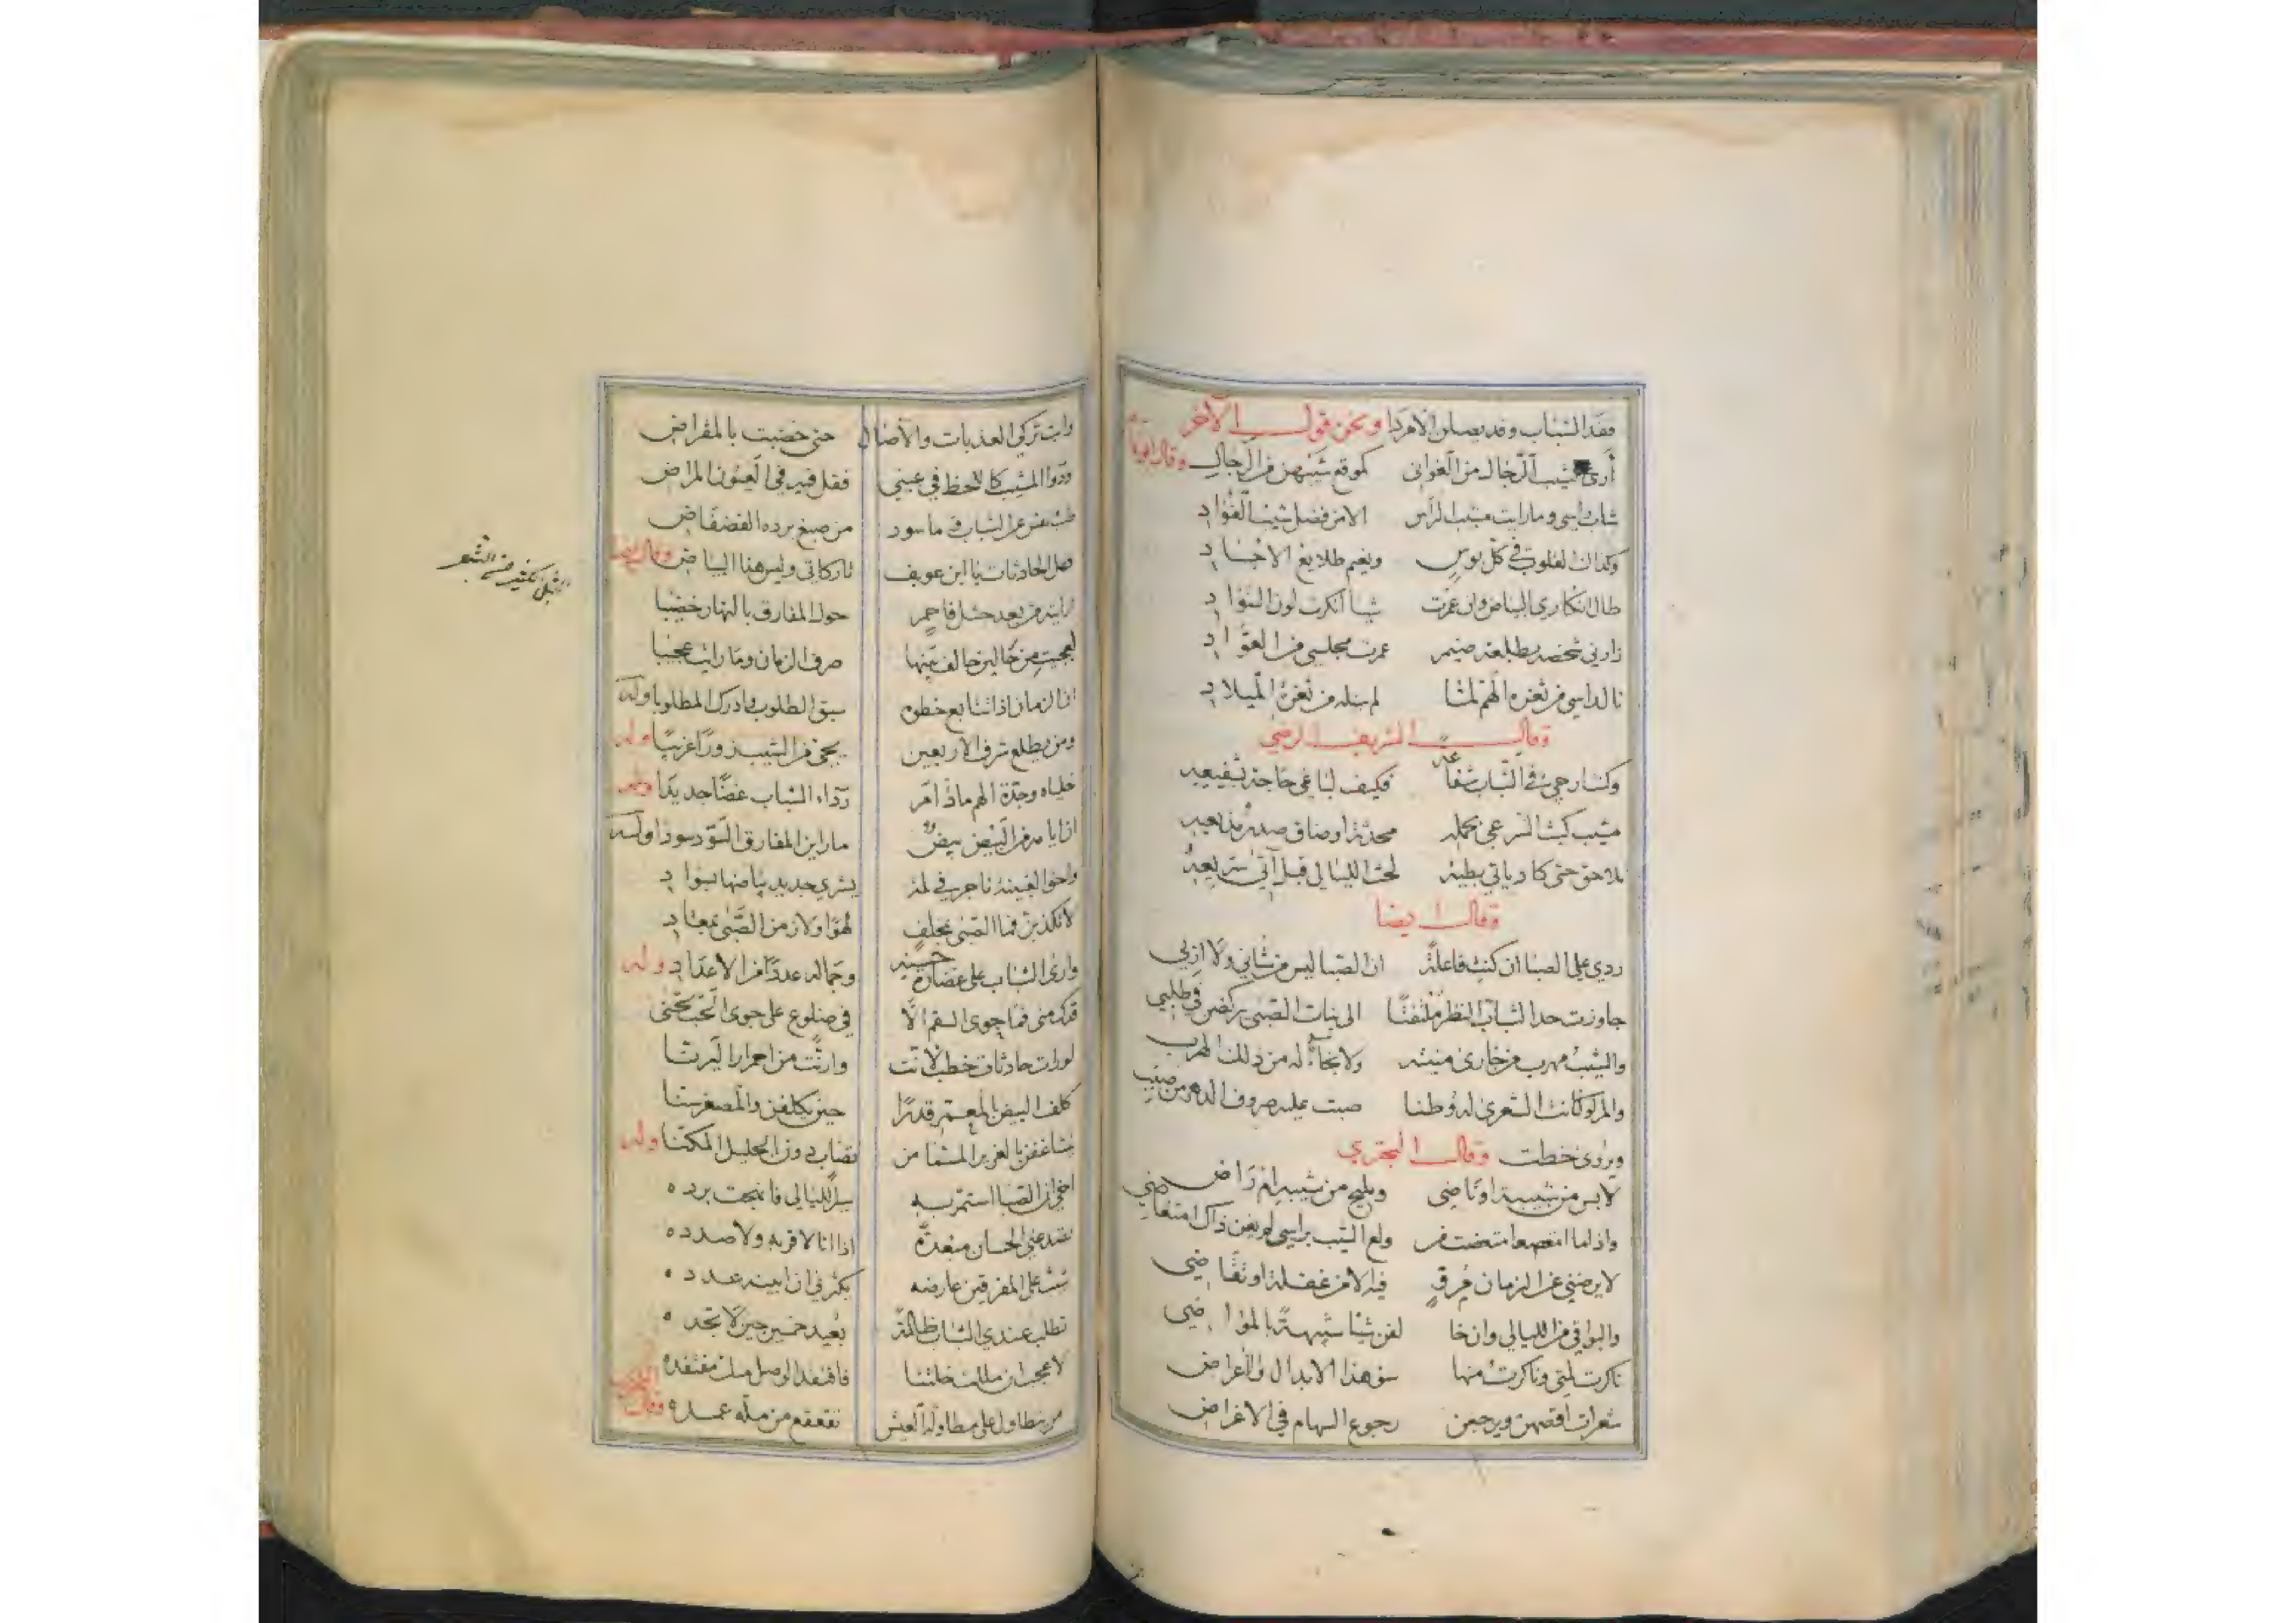 فقد الشباب وقد يصلن الامردا ونحن قول الآخر
أرى شيب الرجال من الغواني كموقع شيبهن من الرجال وقال ابو تمام
شاب راسي وما رايت مشيب الراس الا من فضل شيب الفؤاد
وكذاك القلوب في كل بوس ونعيم طلايع الاجساد
طال انكاري البياض وان عمرت شيا انكرت لون السواد
زارني شخصه بطلعة ضيم عمرت مجلسي من العواد
نال راسي من ثغرة الهم لما لم ينله من ثغرة الميلاد
وقال الشريف الرضي
وكنت ارجي في الشباب شفاعة فكيف لباغي حاجة بشفيعه
مشيب كبث السر عي بحمله محدثه او ضاق صدر مذيعه
تلاحق حتى كاد ياتي بطيئه لحث الليالي قبل آتي سريعه
وقال ايضا
ردي علي الصبا ان كنت فاعلة ان الصبا ليس من شاني ولا اربي
جاوزت حد الشباب النظر ملتفتا الى بنات الصبى يركضن في طلبي
والشيب مهرب من جارى منيته ولا نجاء له من ذلك الهرب
والمرء لو كانت الشعرى له وطنا صبت عليه صروف الدهر من صبب
ويروى خطت وقال البحتري
لابس من شبيبة او ناضي ومليح من شيبه ام راض
واذا ما امتعضت من ولع الشيب براسي لم يغن ذاك امتعاضي
لا يرضيني عن الزمان مرق فيه الا من غفلة او تقاضي
والبواقي من الليالي وان خالفن شيئا شبيهة بالمواضي
ناكرت لمتي وناكرت منها سوء هذا الابدال والاعراض
شعرات اقصهن ويرجعن رجوع السهام في الاغراض
وابت تركي الغديات والآصال حتى خضبت بالمقراض
ودوا المشيب كاللحظ في عيني فقل فيه في العيون المراض
من صبغ برده الفضفاض
فعل الحادثات يا ابن عويف تاركاتي وليس هذا البياض وقال ايضا
رايته من بعد جثل فاحم حول المفارق بالنهار خضيبا
فعجبت من حالين خالف منهما صرف الزمان وما رايت عجيبا
ان الزمان اذا تتابع خطوه سبق الطلوب وادرك المطلوبا وله
ومن يطلع شرف الاربعين يحي من الشيب زورا غريبا وله
خلياه وجدة الهم ما دام رداء الشباب غضا جديدا وله
ان ايامه من البيض بيض ما راين المفارق السود سودا وله
واخوا الغبينة تاجر في لمة يشري جديد بياضها بسواد
لا تكذبن فما الصبى بمخلف لهوا ولا زمن الصبى بمعاد
وارى الشباب على غضارة حسنه وجماله عددا من الاعداد وله
قدك مني فما جوى السقم الا في ضلوع على جوى الحب تحنى
لو رات حادثات خطب لانت وارنت من احمرارا ليرتنا
كلف البيض بالمعمر قدرا حين يكلفن والمصغر سنا
يتشاغفن بالغرير المسمى من تصاب دون الجليل المكنى وله
اخي ان الصبا استمر به سير الليالي فانهجت برده
تصد عني الحسان مبعدة اذ انا لا قربه ولا صدده
شيب على المفرقين عارضه يكثر في ان ابينه عدده
تطلب عندي الشباب ظالمة بعيد خمسين حين لا تجده
لا عجب ان مللت خلتنا فافتقد الوصل منك مفتقده
من يتطاول على مطاولة العيش تقعقع من مله عمده وقال